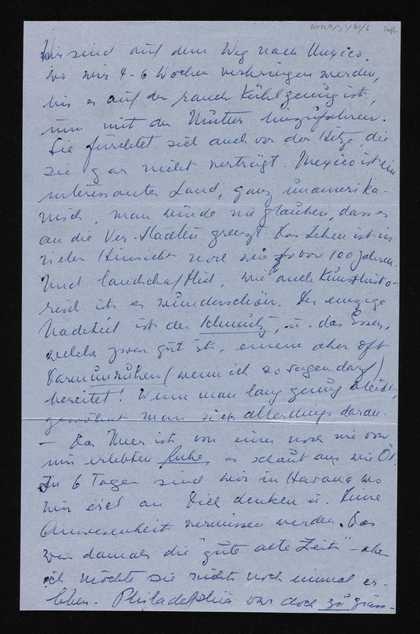 Wir sind auf dem Weg nach Mexico,
wo wir 4-6 Wochen verbringen werden,
bis es auf der ranch kühl genug ist,
um mit der Mutter hinzufahren.
Sie fürchtet sich auch vor der Hitze, die
sie gar nicht verträgt. Mexico ist ein
interessantes Land, ganz unamerika-
nisch, man würde nie glauben, dass es
an die Ver. Staaten grenzt. Das Leben ist in
vieler Hinsicht noch wie vor 100 Jahren.
Und landschaftlich, wie auch kunsthisto-
risch ist es wunderschön. Der einzige
Nachteil ist der Schmutz, u. das Essen,
welches zwar gut ist, einem aber oft
Darmunruhen (wenn ich so sagen darf)
bereitet! Wenn man lang genug bleibt,
gewöhnt man sich allerdings daran.
— Das Meer ist von einer noch nie von
mir erlebten Ruhe, es schaut aus wie Öl.
In 6 Tagen sind wir in Havana wo
wir viel an Dich denken u. Deine
Anwesenheit vermissen werden. Das
war damals die "gute alte Zeit" - aber
ich möchte sie nicht noch einmal er-
leben. Philadelphia war doch zu grau-